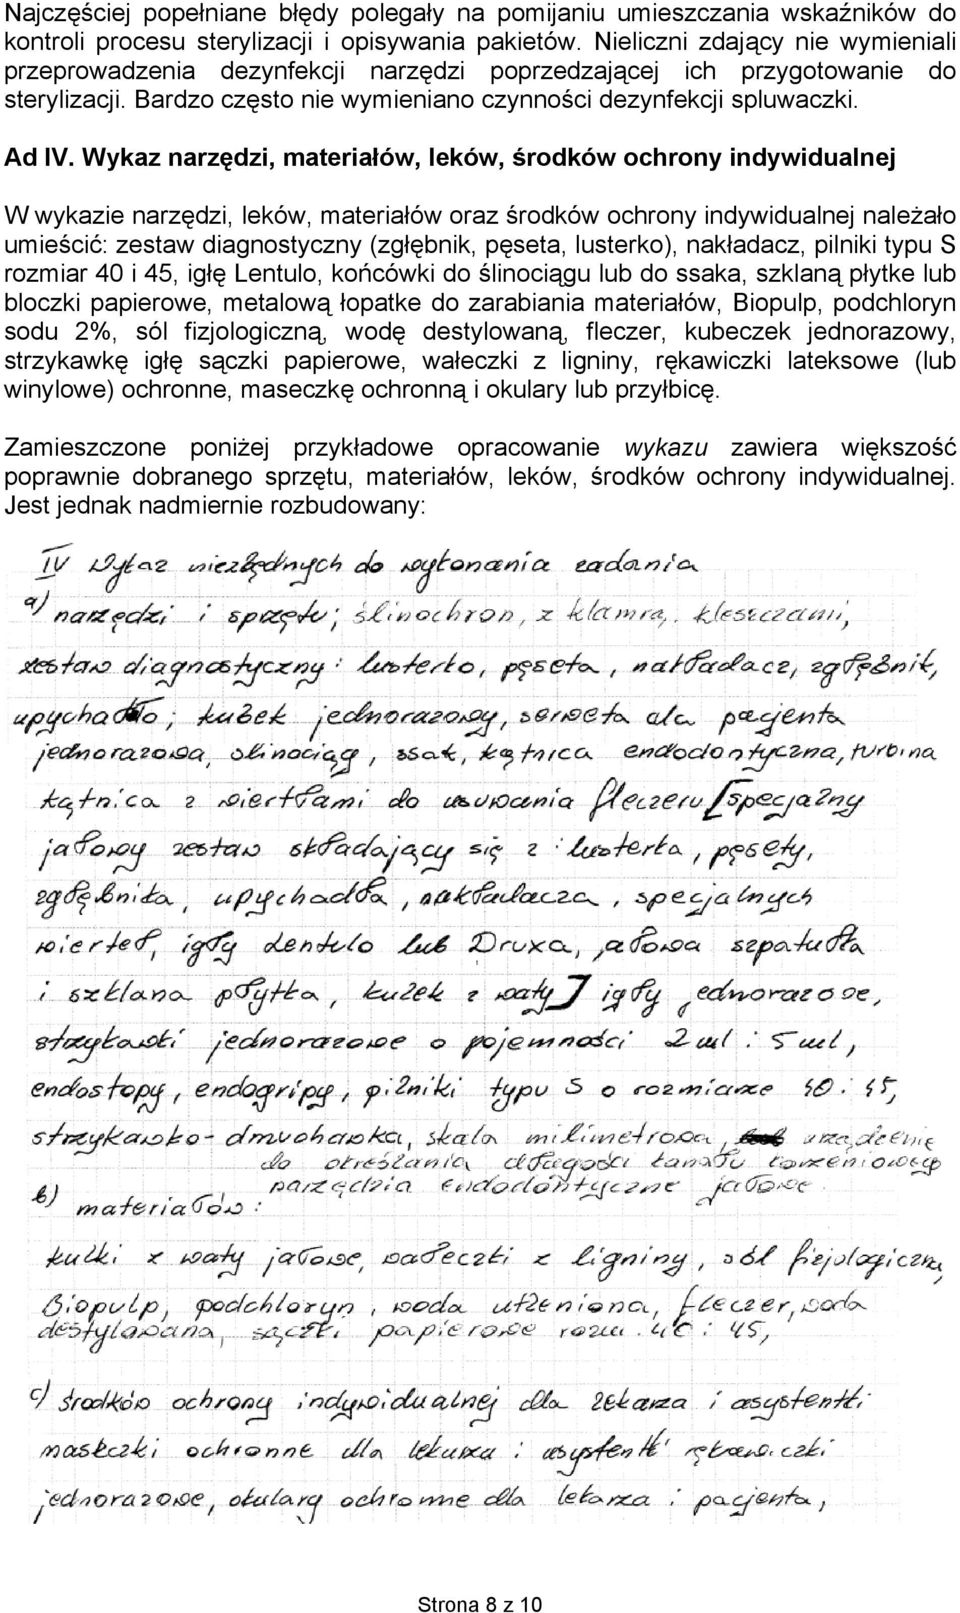 Najczęściej popełniane błędy polegały na pomijaniu umieszczania wskaźników do
kontroli procesu sterylizacji i opisywania pakietów. Nieliczni zdający nie wymieniali
przeprowadzenia dezynfekcji narzędzi poprzedzającej ich przygotowanie do
sterylizacji. Bardzo często nie wymieniano czynności dezynfekcji spluwaczki.
Ad IV. Wykaz narzędzi, materiałów, leków, środków ochrony indywidualnej
W wykazie narzędzi, leków, materiałów oraz środków ochrony indywidualnej należało
umieścić: zestaw diagnostyczny (zgłębnik, pęseta, lusterko), nakładacz, pilniki typu S
rozmiar 40 i 45, igłę Lentulo, końcówki do ślinociągu lub do ssaka, szklaną płytke lub
bloczki papierowe, metalową łopatke do zarabiania materiałów, Biopulp, podchloryn
sodu 2%, sól fizjologiczną, wodę destylowaną, fleczer, kubeczek jednorazowy,
strzykawkę igłę sączki papierowe, wałeczki z ligniny, rękawiczki lateksowe (lub
winylowe) ochronne, maseczkę ochronną i okulary lub przyłbicę.
Zamieszczone poniżej przykładowe opracowanie wykazu zawiera większość
poprawnie dobranego sprzętu, materiałów, leków, środków ochrony indywidualnej.
Jest jednak nadmiernie rozbudowany:
IV Wykaz niezbędnych do wykonania zadania
a) narzędzi i sprzętu; ślinochron, z klamrą, kleszczami,
zestaw diagnostyczny: lusterko, pęseta, nakładacz, zgłębnik,
upychadło; kubek jednorazowy, serweta dla pacjenta
jednorazowa, slinociąg, ssak, kątnica endodontyczna, turbina
kątnica z wiertłami do usuwania fleczeru [specjalny
jałowy zestaw składający się z: lusterka, pęsety,
zgłębnika, upychadła, nakładacza, specjalnych
wierteł, igły lentulo lub Druxa, jałowa szpatułka
i szklana płytka, kulek z waty] igły jednorazowe,
strzykawki jednorazowe o pojemności 2ml i 5ml,
endostopy, endogripy, pilniki typu S o rozmiarze 40 i 45,
strzykawko-dmuchawka, skala milimetrowa, urządzenie
do określania długości kanału korzeniowego
narzędzia endodontyczne jałowe.
b) materiałów:
kulki z waty jałowe, wałeczki z ligniny, sól fizjologiczna,
Biopulp, podchloryn, woda utleniona, fleczer, woda
destylowana, sączki papierowe rozm. 40 i 45,
c) środków ochrony indywidualnej dla lekarza i asystentki
maseczki ochronne dla lekarza i asystentki rękawiczki
jednorazowe, okulary ochronne dla lekarza i pacjenta,
Strona 8 z 10